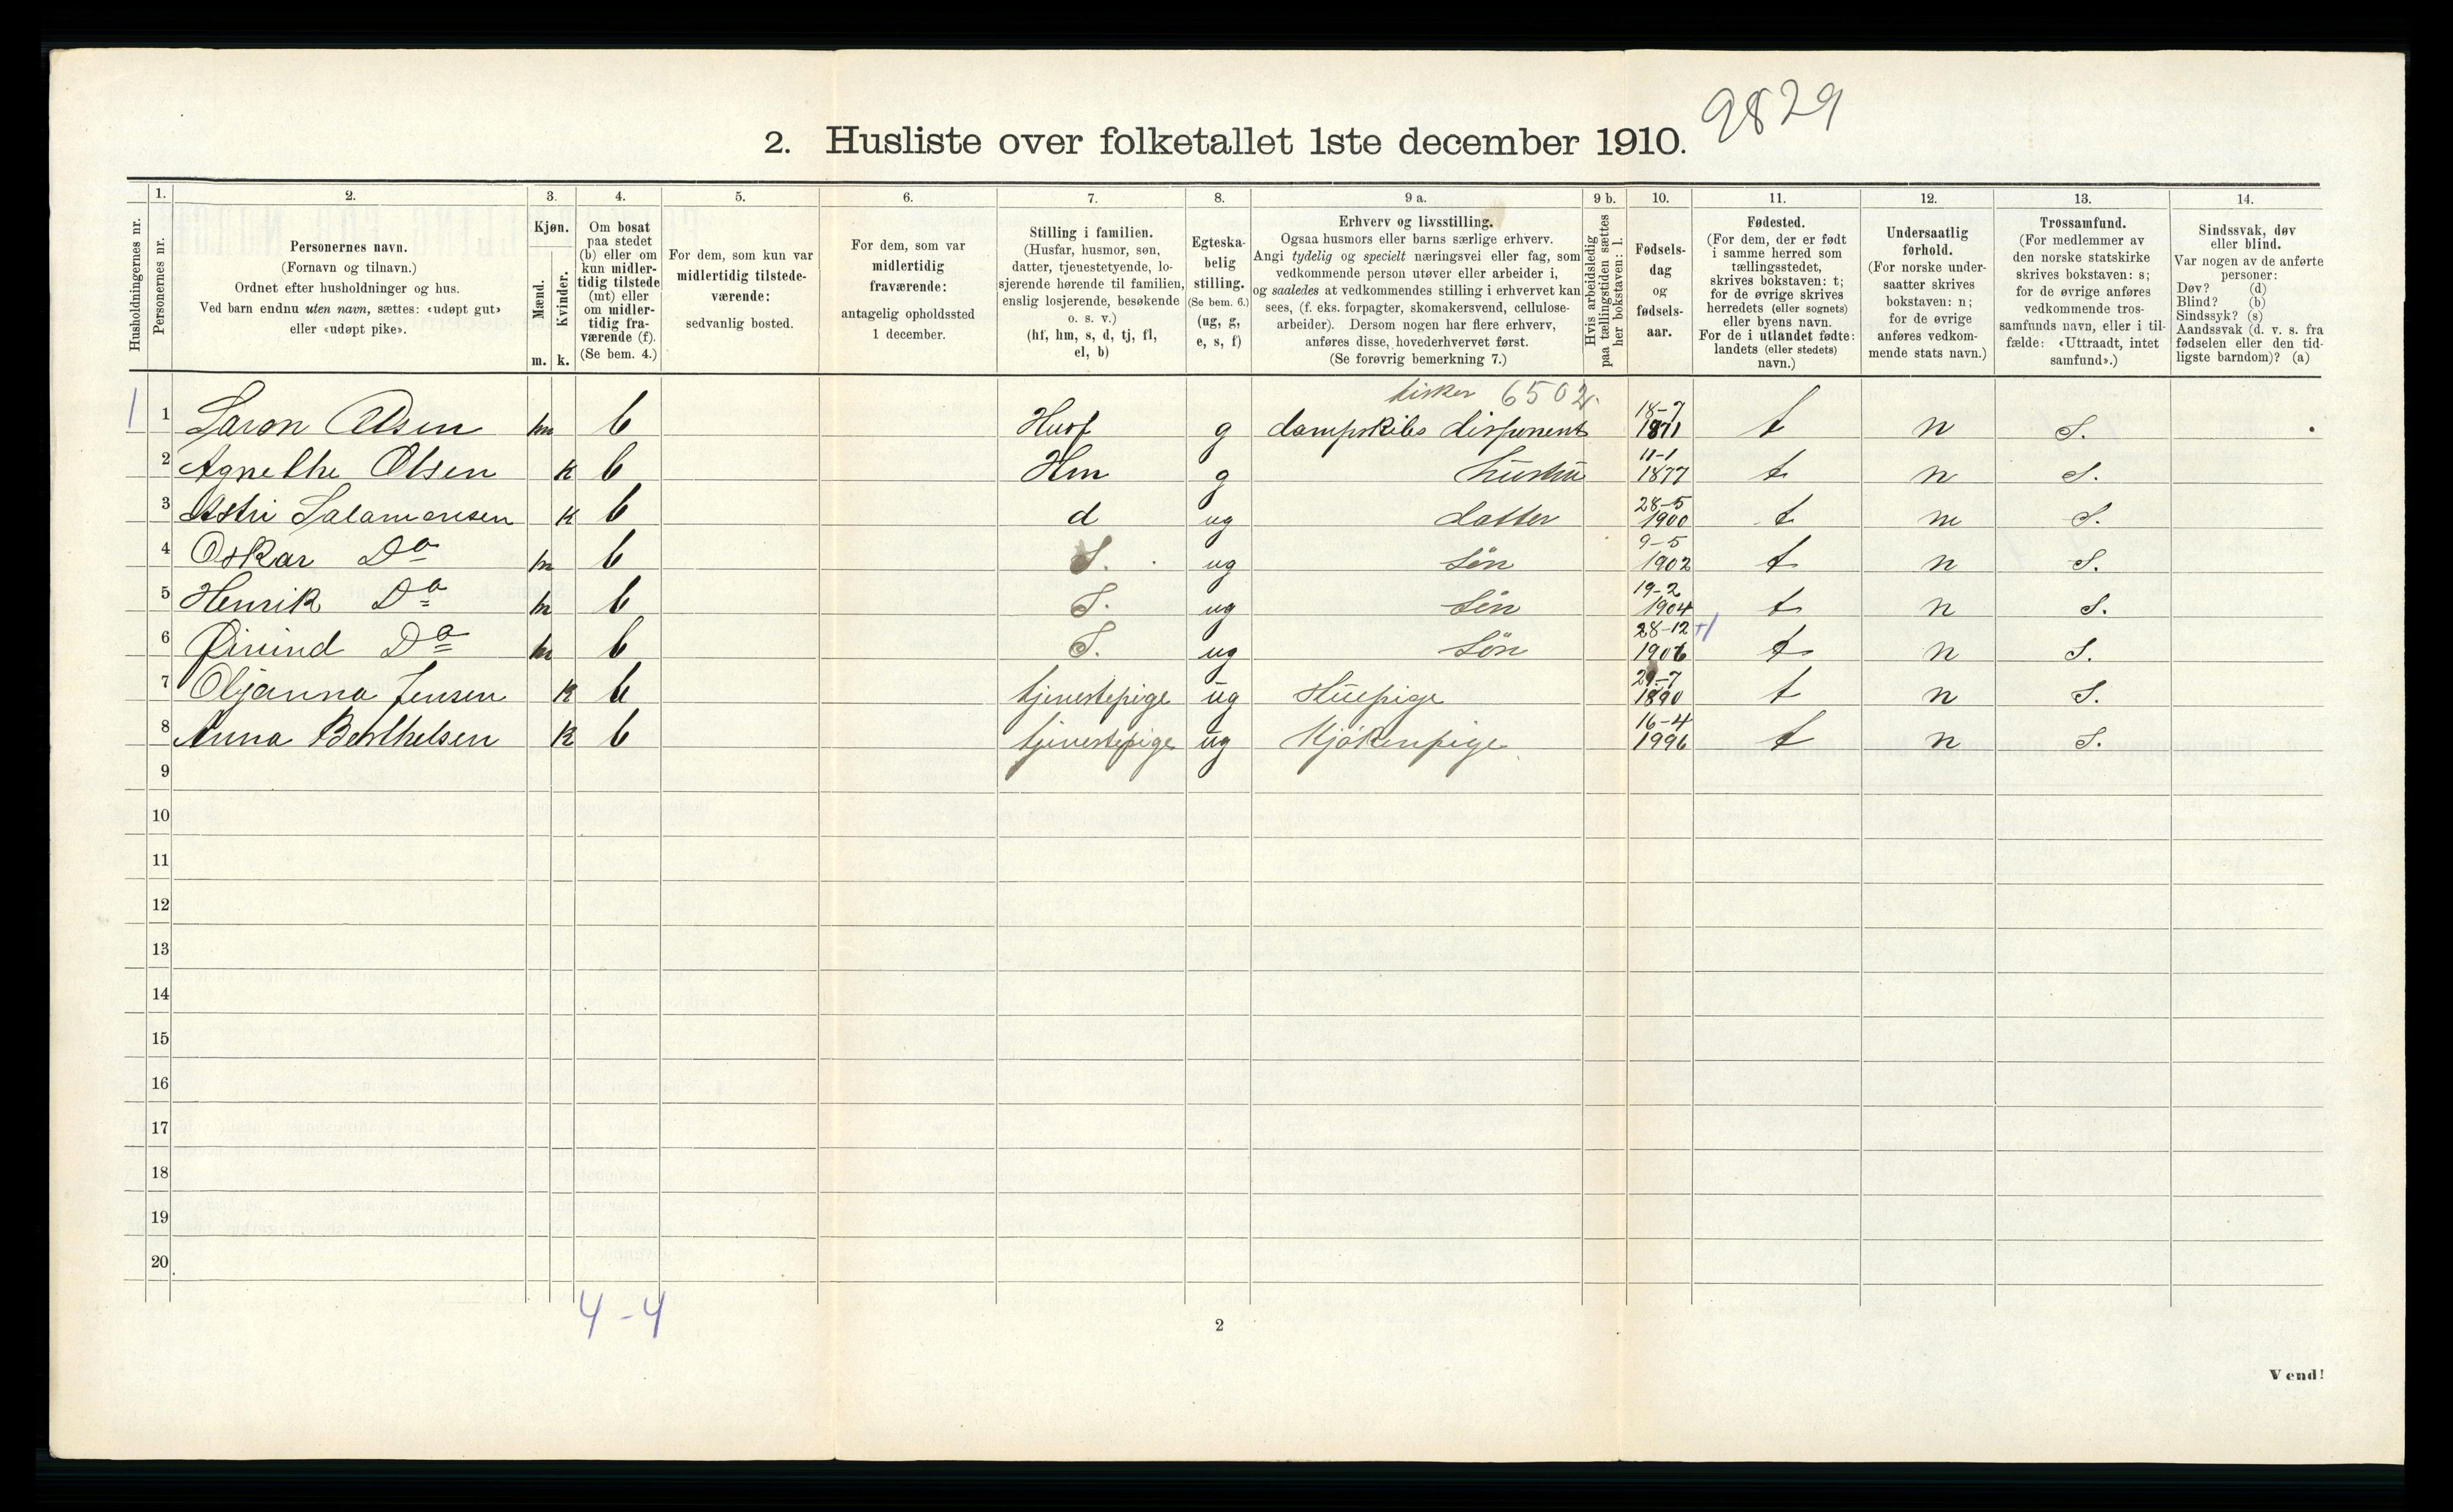 9829
2. Husliste over folketallet 1ste december 1910.
Husholdningernes nr.
1.
Personernes nr.
2.
Personernes navn.
(Fornavn og tilnavn.)
Ordnet efter husholdninger og hus.
Ved barn endnu uten navn, sættes: «udøpt gut»
eller «udøpt pike».
3.
Kjøn.
Mænd.
m.
Kvinder.
k.
4.
Om bosat
paa stedet
(b) eller om
kun midler-
tidig tilstede
(mt) eller
om midler-
tidig fra-
værende (f).
(Se bem. 4.)
5.
For dem, som kun var
midlertidig tilstede-
værende:
sedvanlig bosted.
6.
For dem, som var
midlertidig
fraværende:
antagelig opholdssted
1 december.
7.
Stilling i familien.
(Husfar, husmor, søn,
datter, tjenestetyende, lo-
sjerende hørende til familien,
enslig losjerende, besøkende
o. s. v.)
(hf, hm, s, d, tj, fl,
el, b)
8.
Egteska-
belig
stilling.
(Se bem. 6.)
(ug, g,
e, s, f)
9 a.
Erhverv og livsstilling.
Ogsaa husmors eller barns særlige erhverv.
Angi tydelig og specielt næringsvei eller fag, som
vedkommende person utøver eller arbeider i,
og saaledes at vedkommendes stilling i erhvervet kan
sees, (f. eks. forpagter, skomakersvend, cellulose-
arbeider). Dersom nogen har flere erhverv,
anføres disse, hovederhvervet først.
(Se forøvrig bemerkning 7.)
9 b.
Hvis arbeidsledig
paa tællingstiden sættes
her bokstaven: l.
10.
Fødsels-
dag
og
fødsels-
aar.
11.
Fødested.
(For dem, der er født
i samme herred som
tællingsstedet,
skrives bokstaven: t;
for de øvrige skrives
herredets (eller sognets)
eller byens navn.
For de i utlandet fødte:
landets (eller stedets)
navn.)
12.
Undersaatlig
forhold.
(For norske under-
saatter skrives
bokstaven: n;
for de øvrige
anføres vedkom-
mende stats navn.)
13.
Trossamfund.
(For medlemmer av
den norske statskirke
skrives bokstaven: s;
for de øvrige anføres
vedkommende tros-
samfunds navn, eller i til-
fælde: «Uttraadt, intet
samfund».)
14.
Sindssvak, døv
eller blind.
Var nogen av de anførte
personer:
Døv? (d)
Blind? (b)
Sindssyk? (s)
Aandssvak (d. v. s. fra
fødselen eller den tid-
ligste barndom)? (a)
fisker 6502.
1 1 Saron Olsen m b Husf g dampskibs disponent 18-7 1871 t n S.
2 Agnethe Olsen k b Hm g hustru 11-1 1877 t n S.
3 Astri Salamonsen k b d ug datter 28-5 1900 t n S.
4 Oskar Do m b S. ug Søn 9-5 1902 t n S.
5 Henrik Do m b S. ug Søn 19-2 1904 t n S.
6 Øivind Do m b S. ug Søn 28-12 +1 1906 t n S.
7 Oljanna Jensen k b tjenestepige ug Stuepige 29-7 1890 t n S.
8 Anna Berthelsen k b tjenestepige ug Kjøkenpige 16-4 1996 t n S.
9
10
11
12
13
14
15
16
17
18
19
20
4-4
2
Vend!